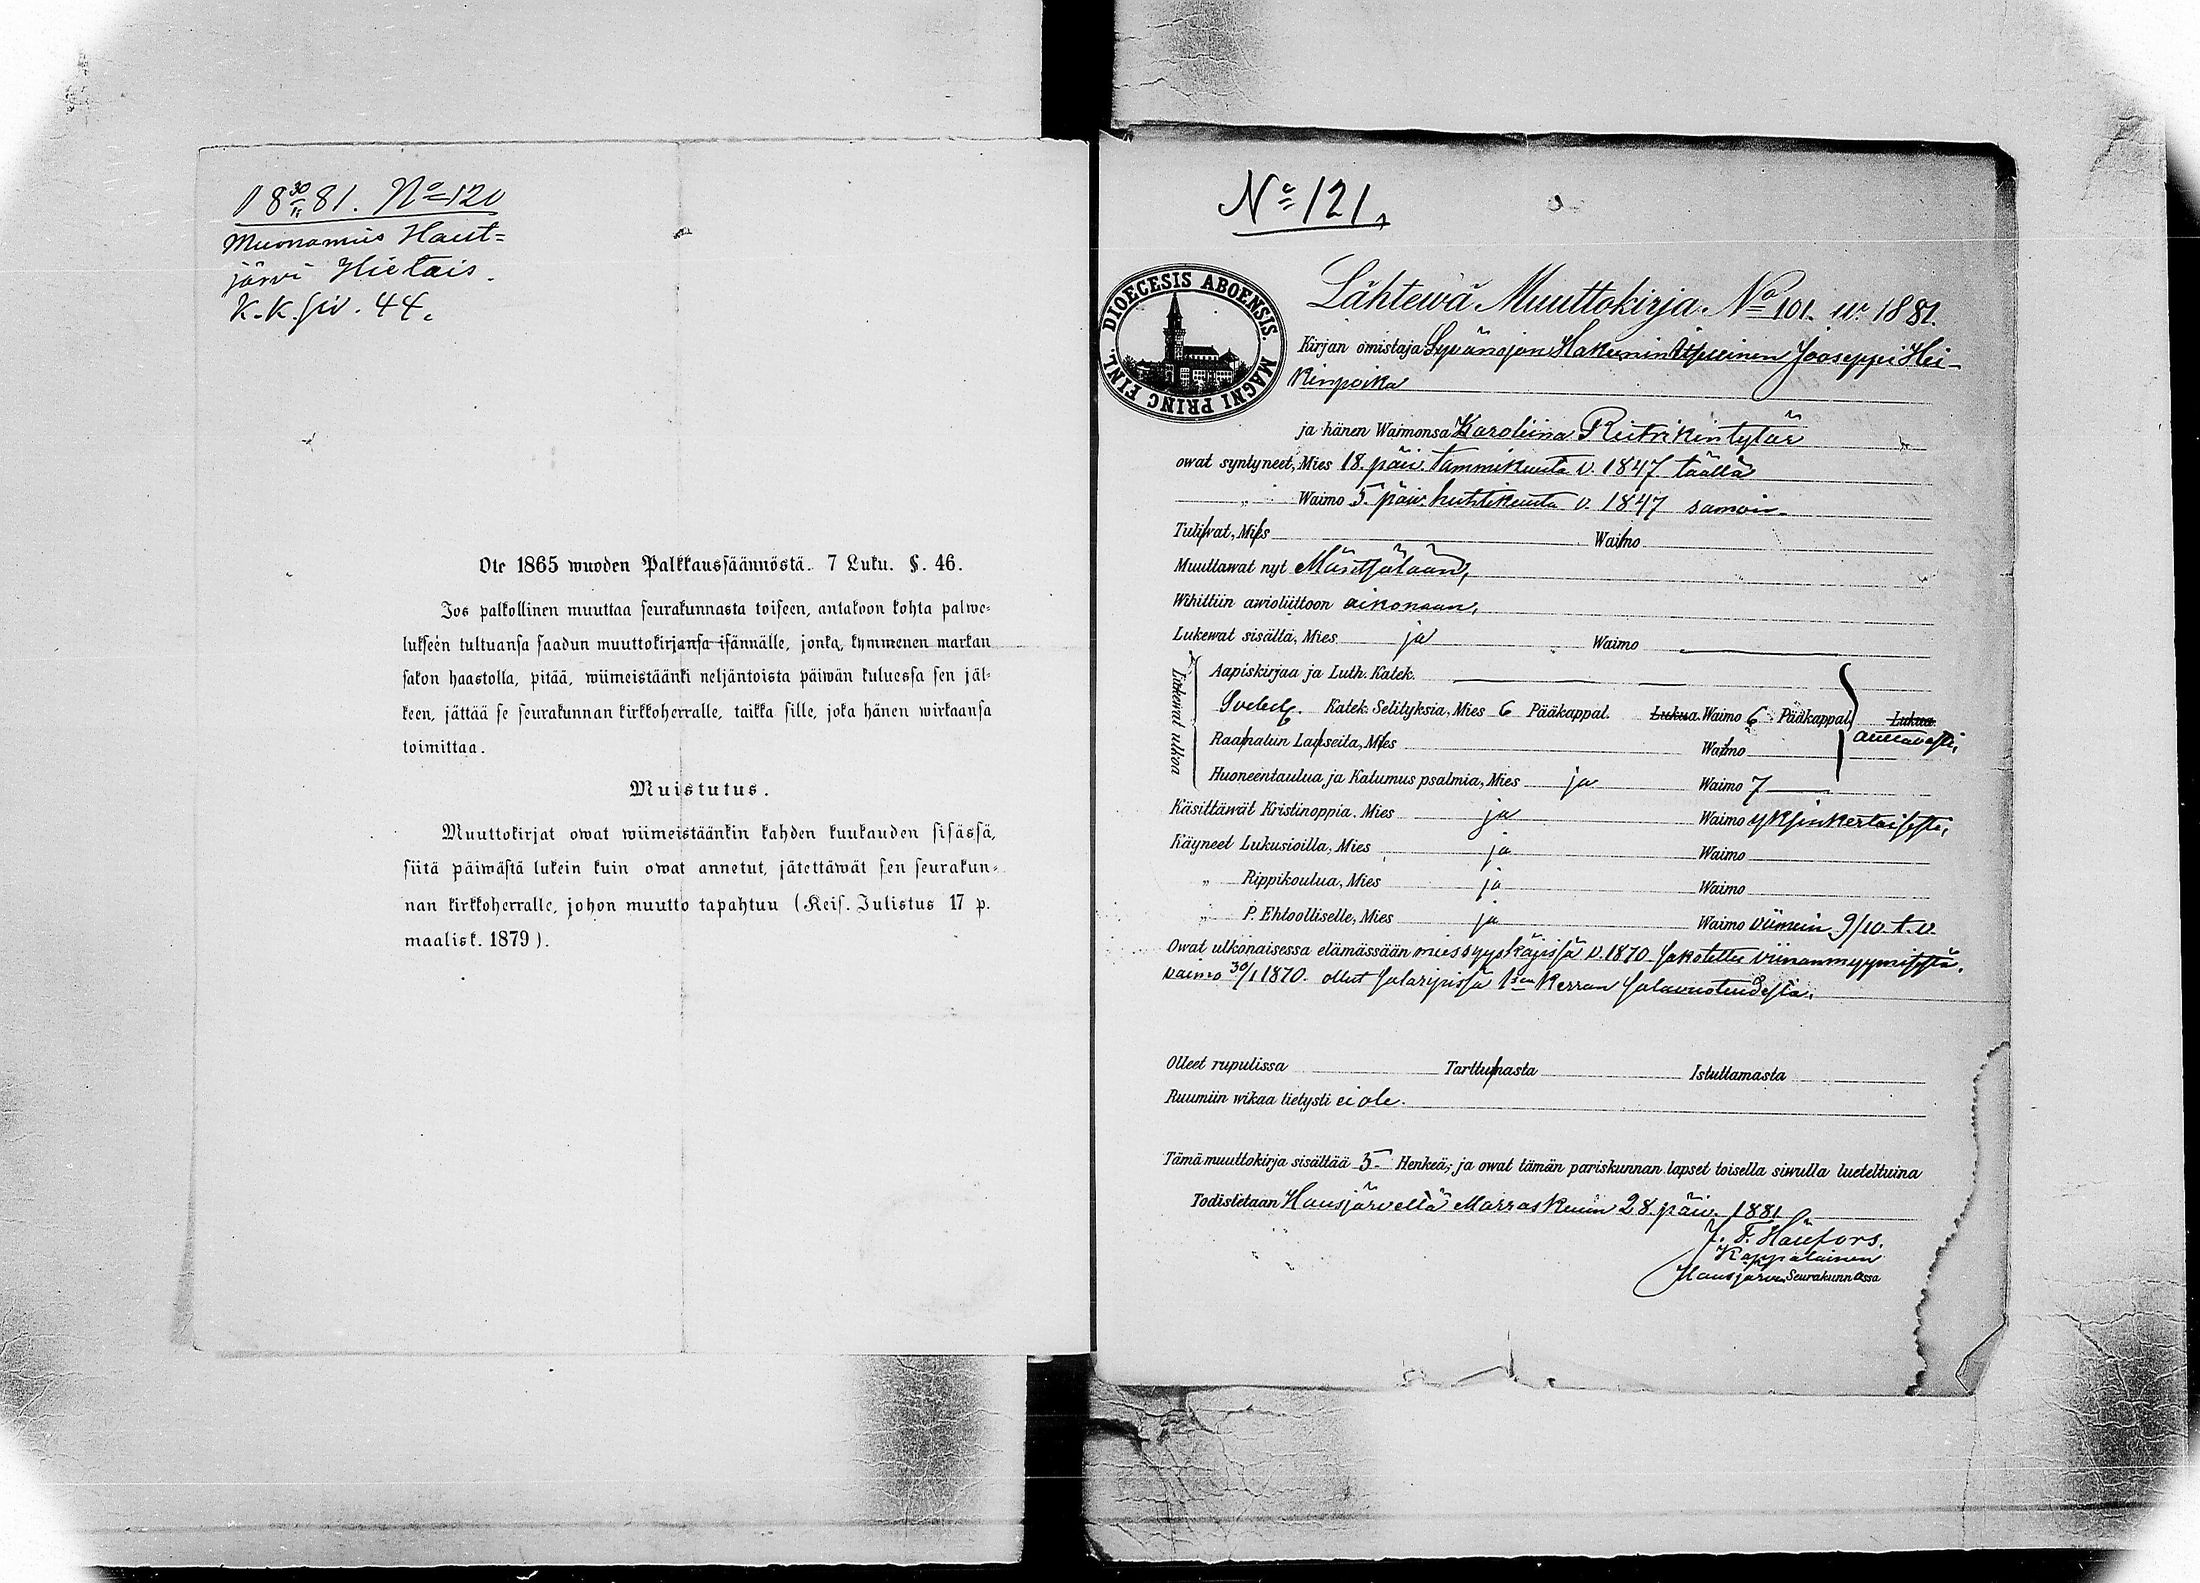 18 30/11 81. No 120
Muonamies Haut=
järvi Hietais.
K.K. siv. 44.
Ote 1865 wuoden Palkkaussäännöstä. 7 Luku. §. 46.
Jos palkollinen muuttaa seurakunnasta toiseen, antakoon kohta palwe=
lukseen tultuansa saadun muuttokirjansa isännälle, jonka, kymmenen markan
sakon haastolla, pitää, wiimeistäänki neljäntoista päiwän kuluessa sen jäl=
keen, jättää se seurakunnan kirkkoherralle, taikka sille, joka hänen wirkaansa
toimittaa.
Muistutus.
Muuttokirjat owat wiimeistäänkin kahden kuukauden sisässä,
siitä päiwästä lukein kuin owat annetut, jätettäwät sen seurakun=
nan kirkkoherralle, johon muutto tapahtuu (Keis. Julistus 17 p.
maalisk. 1879).
No 121,
DIOECESIS ABOENSIS. MAGNI PRINC FINL.
Lähtewä Muuttokirja No 101. w. 1881.
Kirjan omistaja Hakunin Itsellinen Jooseppi Hei-
kinpoika
ja hänen Waimonsa Karoliina Retrikintytär
owat syntyneet, Mies 18. päiv. tammikuuta v. 1847 täällä
„ Waimo 5. päiv. huhtikuuta v. 1847 samoin.
Tuliwat, Mies Waimo
Muuttawat nyt Mäntsälään,
Wihittiin awioliittoon aikonaan,
Lukewat sisältä, Mies ja Waimo
Lukewat ulkoa
Aapiskirjaa ja Luth. Katek.
Svebel. Katek. Selityksiä, Mies 6 Pääkappal. Lukua Waimo 6 Pääkappal. Lukua
auttavasti,
Raamatun Lauseita, Mies Waimo
Huoneentaulua ja Katumus psalmia, Mies ja Waimo 7
Käsittäwät Kristinoppia. Mies ja Waimo yksinkertaisesti,
Käyneet Lukusioilla, Mies ja Waimo
„ Rippikoulua, Mies ja Waimo
„ P. Ehtoolliselle, Mies ja Waimo viimein 9/10 t.v.
Owat ulkonaisessa elämässään mies syyskäräjissä v. 1870 sakotettu viinanmyymisestä,
vaimo 30/1 1870 ollut salaripissä 1sen kerran salavuoteudesta.
Olleet rupulissa Tarttumasta Istuttamasta
Ruumiin wikaa tietysti ei ole.
Tämä muuttokirja sisältää 5 Henkeä; ja owat tämän pariskunnan lapset toisella siwulla lueteltuina
Todistetaan Hausjärvellä Marraskuun 28. päiv. 1881
Kappalainen
Hausjärven Seurakunnassa